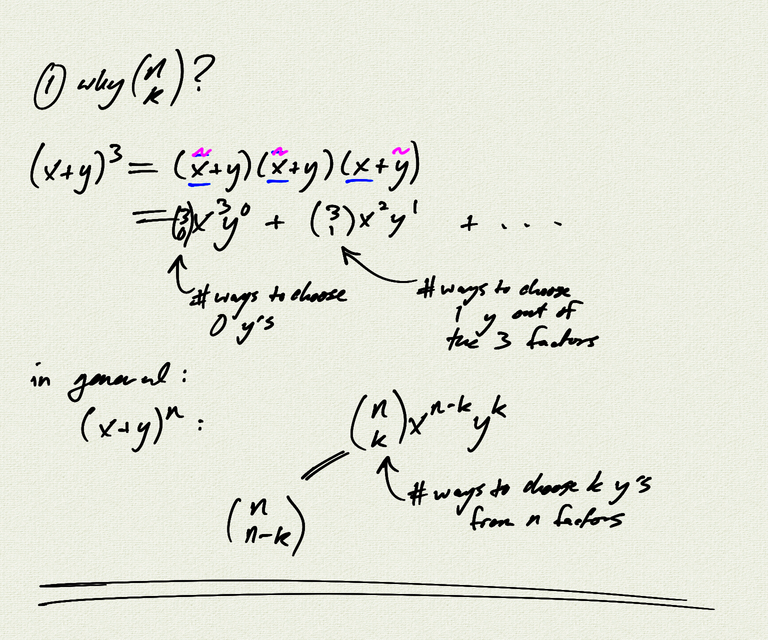 ① why (n k)?
(x+y)³ = (x+y)(x+y)(x+y)
= (3 0)x³y⁰ + (3 1)x²y¹ + . . . .
# ways to choose
0 y's
# ways to choose
1 y out of
the 3 factors
in general:
(x+y)ⁿ : (n k)xⁿ⁻ᵏyᵏ
= (n n-k)
# ways to choose k y's
from n factors